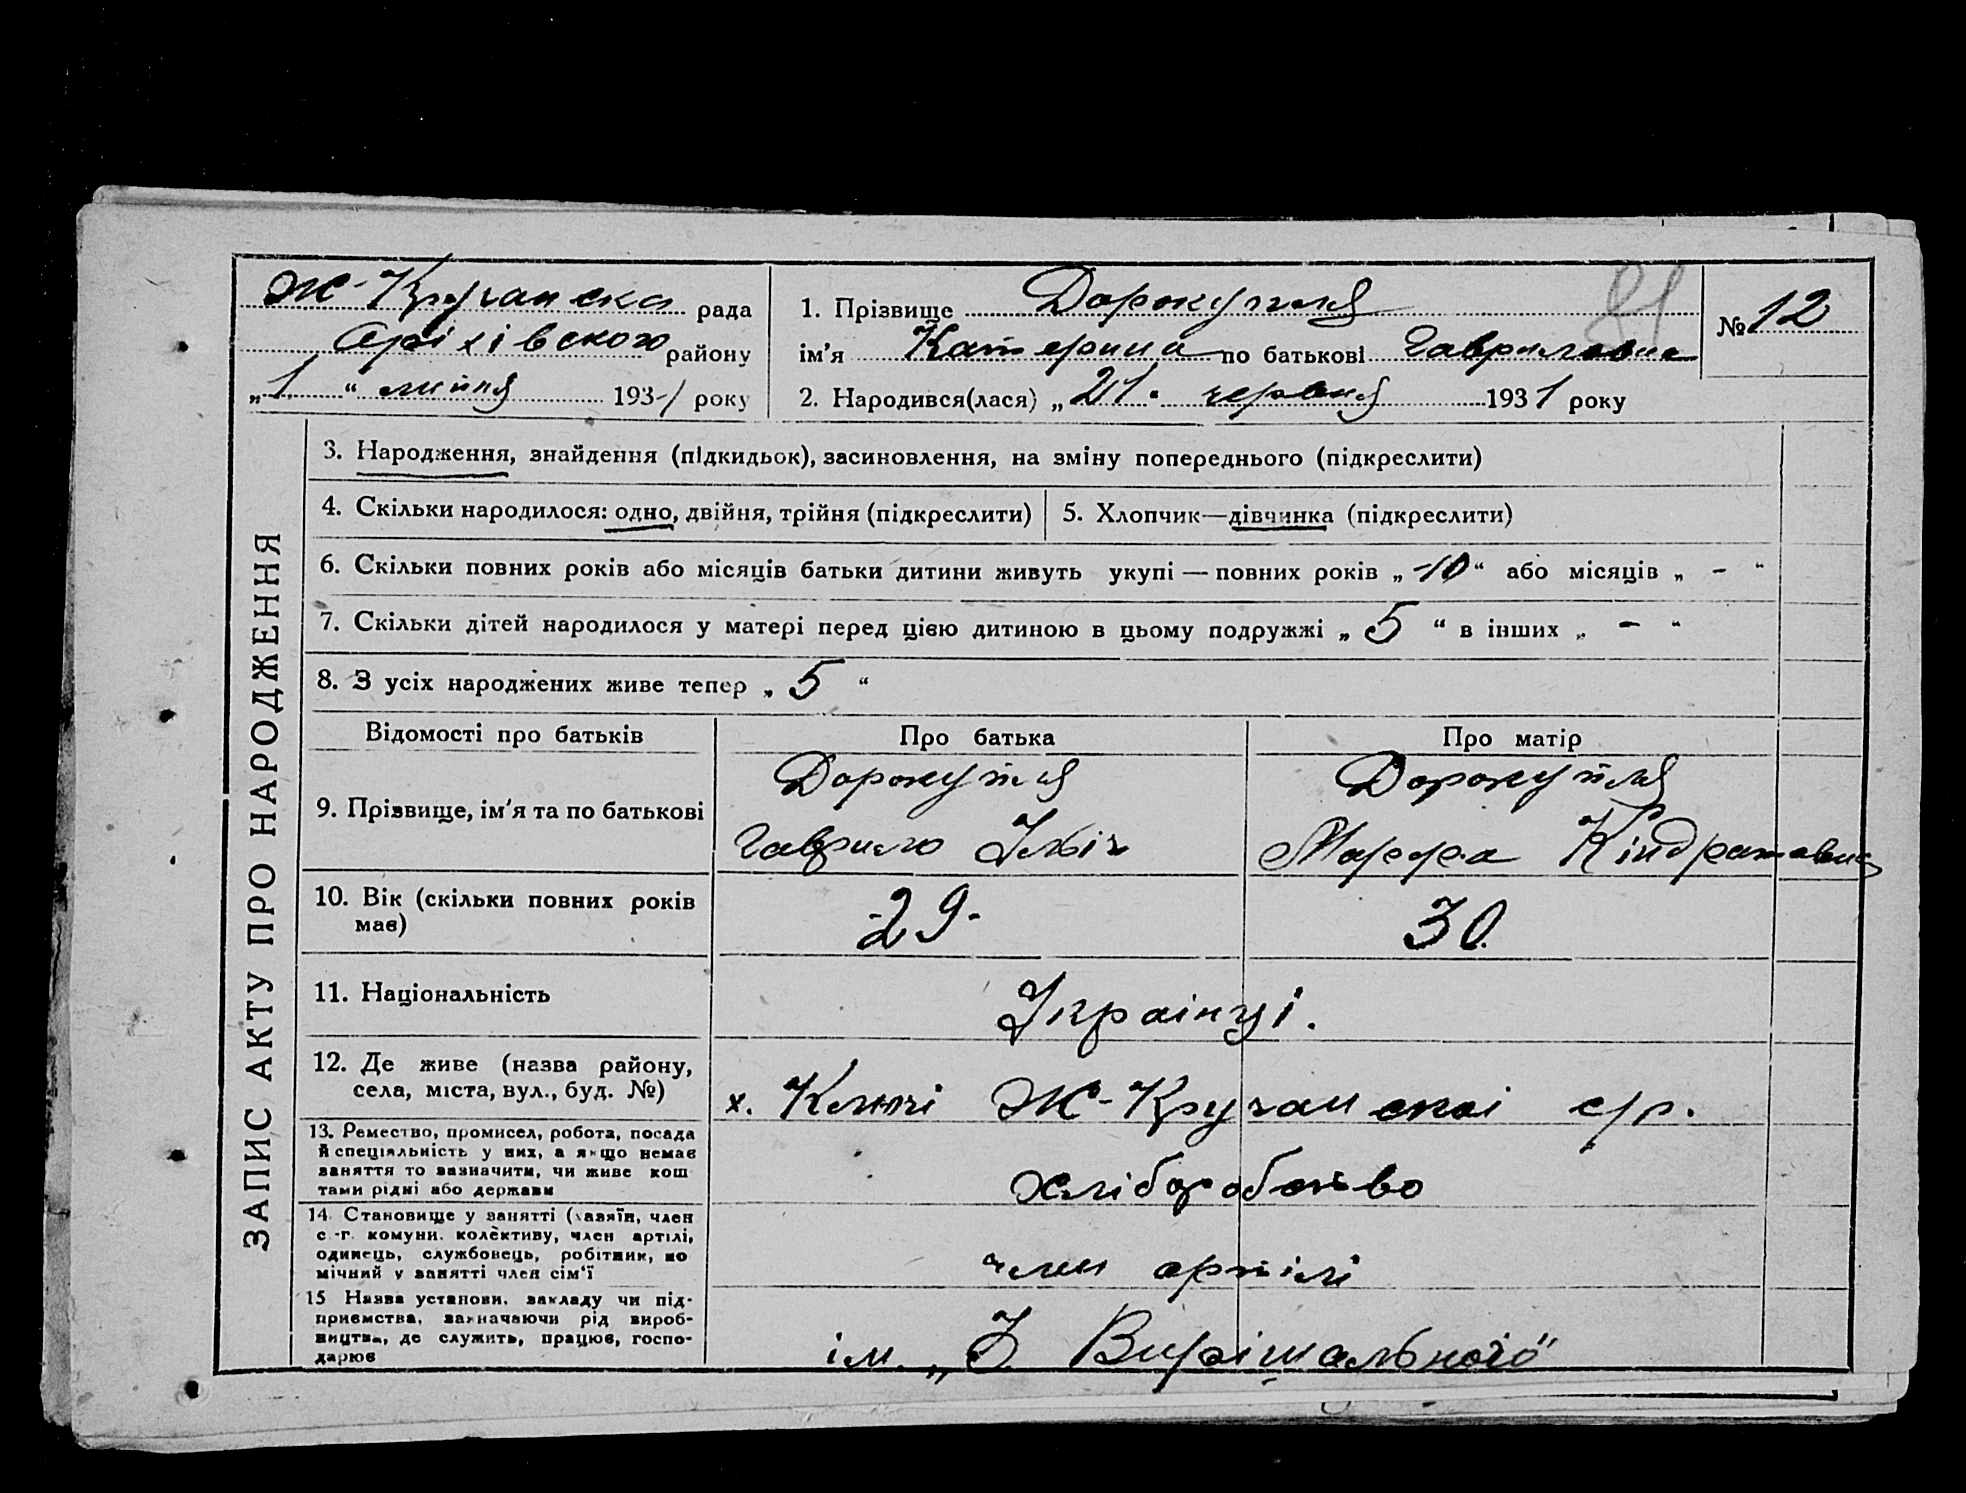 Ж-Кручанска рада
Оріхівського району
„1“ липня 1931 року
1. Прізвище Дорокупля
ім'я Катерина по батькові Гавриловна
2. Народився(лася) „21. червня 1931 року
81
№ 12
ЗАПИС АКТУ ПРО НАРОДЖЕННЯ
3. Народження, знайдення (підкидьок), засиновлення, на зміну попереднього (підкреслити)
4. Скільки народилося: одно, двійня, трійня (підкреслити)
5. Хлопчик—дівчинка (підкреслити)
6. Скільки повних років або місяців батьки дитини живуть укупі — повних років „-10“ або місяців „ - “
7. Скільки дітей народилося у матері перед цією дитиною в цьому подружжі „ 5 “ в інших „ - “
8. З усіх народжених живе тепер „ 5 “
Відомості про батьків
Про батька
Про матір
9. Прізвище, ім'я та по батькові
Дорокупля
Гаврило Ілліч
Дорокупля
Марфа Кіндратовна
10. Вік (скільки повних років
має)
-29-
30.
11. Національність
Українці.
12. Де живе (назва району,
села, міста, вул., буд. №)
х. Ключі Ж-Кручанскоі с/р.
13. Ремество, промисел, робота, посада
й спеціяльність у них, а якщо немає
заняття то зазначити, чи живе кош
тами рідні або держави
хліборобство
14. Становище у занятті (хазяїн, член
с.-г. комуни, колективу, член артілі,
одинець, службовець, робітник, по
мічний у занятті член сім'ї
член артілі
15 Назва установи, закладу чи під-
приємства, зазначаючи рід вироб-
ництва, де служить, працює, госпо-
дарює
ім. „3 Вирішального"